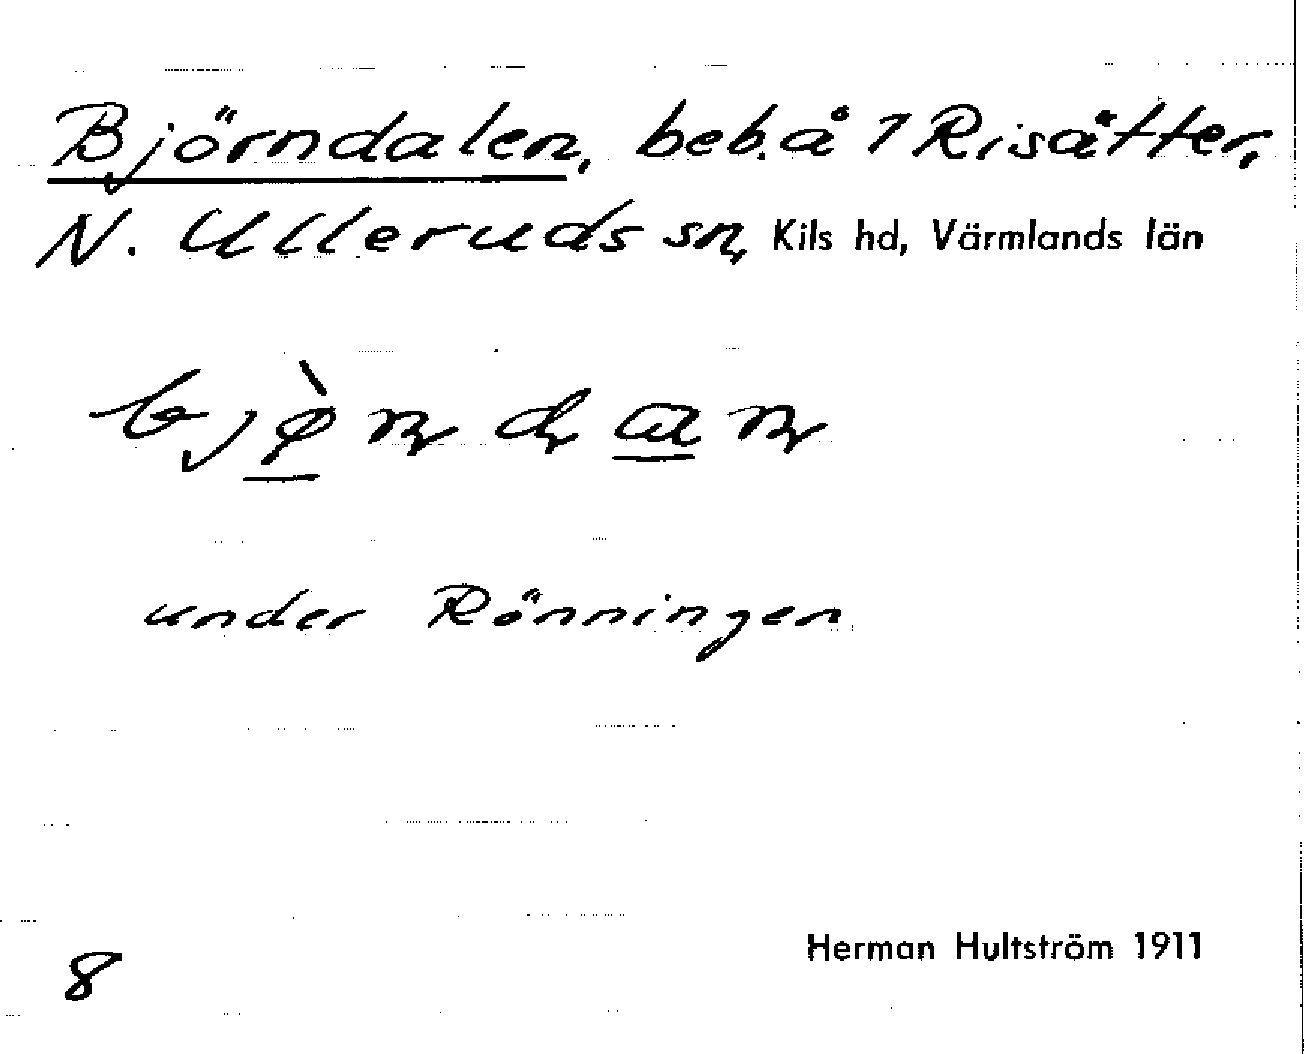 Björndalen, beb. å 1 Risätter,
N. Ulleruds sn, Kils hd, Värmlands län
bjø̀ɳɖaɳ
under Rönningen
8
Herman Hultström 1911